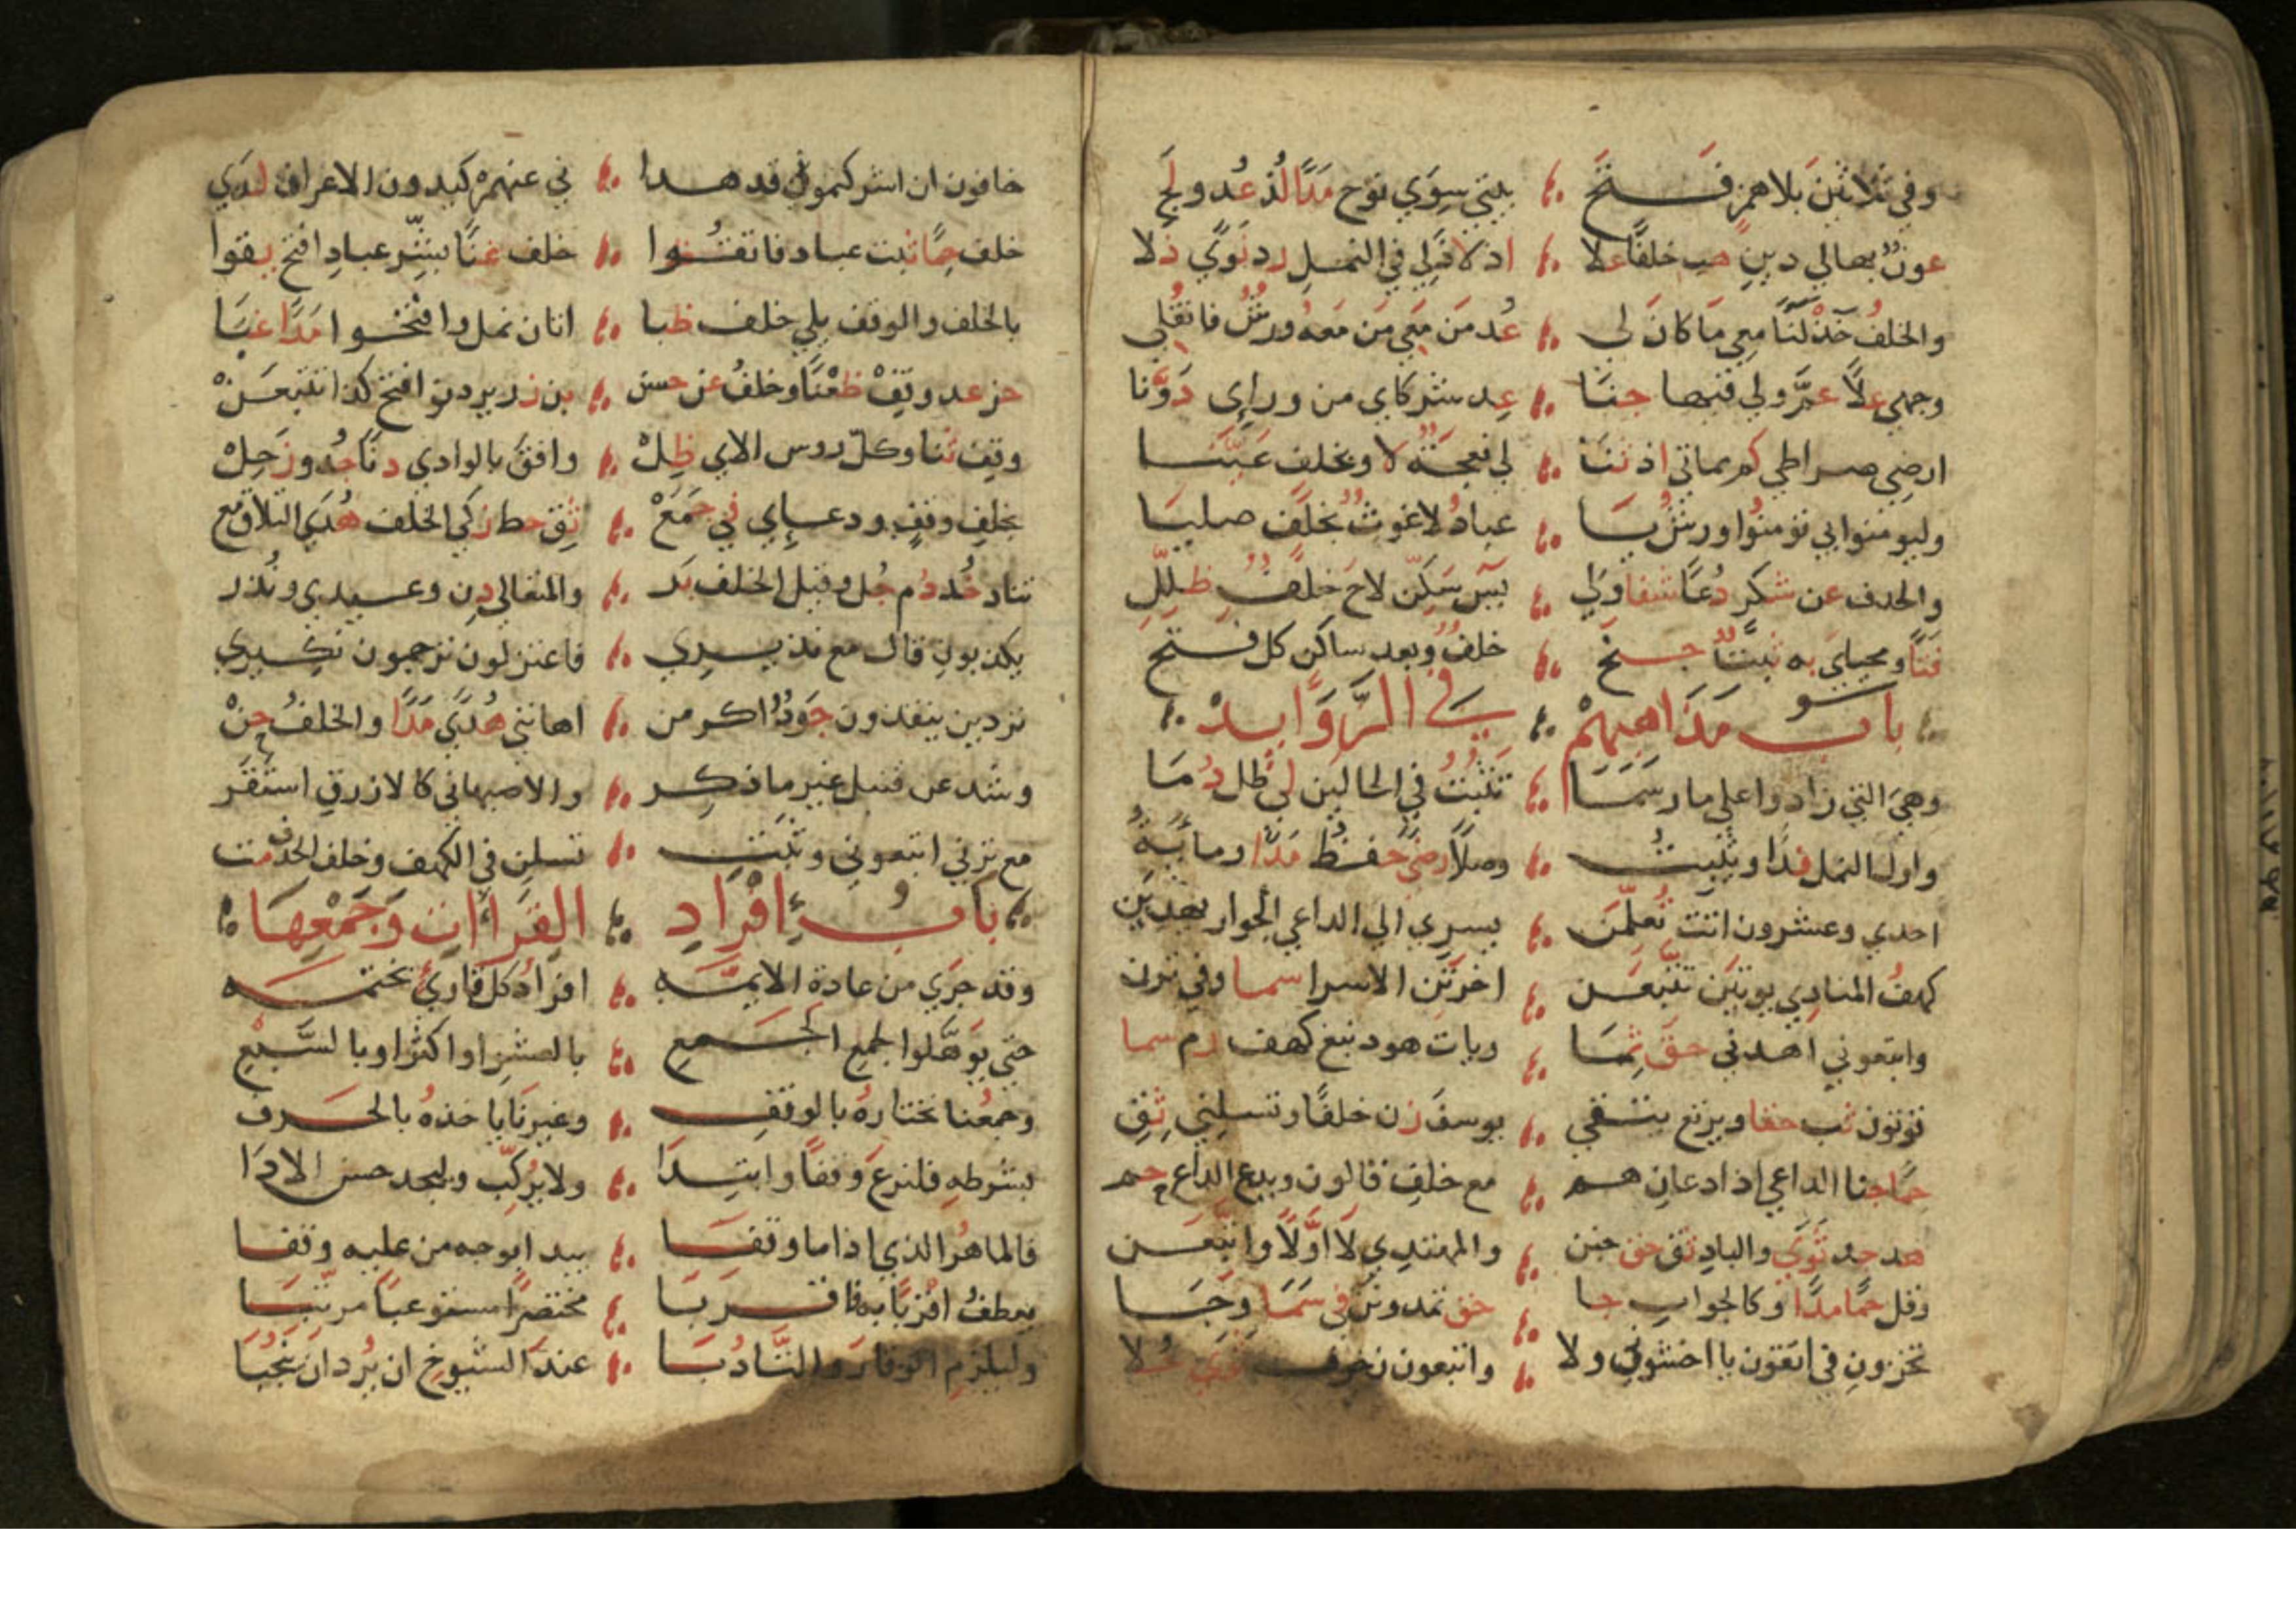 وفي ثلاثين بلا همز فتح ؞ بيتي سوي نوح مدا لذ عد ولح
عون بها لي دين هب خلفا علا ؞ اذ لاذ لي في النمل رد نوي دلا
والخلف خذ لنا معي ما كان لي ؞ عد من معي من معه ورش فانقلي
وجهي علا عم ولي فيها جنا ؞ عد شركاي من وراي دونا
ارضي صراطي كم مماتي اذ ثنا ؞ لي نعجة لا و بخلف عينا
وليومنوا بي تومنوا ورش يا ؞ عباد لا غوث بخلف صليا
والحذف عن شكر دعا شفا ولي ؞ يس سكن لاح خلف ظلل
فتا ومحياي به ثبت جنح ؞ خلف وبعد ساكن كل فتح
باب مذاهبهم ؞ في الزوايد
وهي التي زادوا علي ما رسما ؞ تثبت في الحالين لي ظل دما
واول النمل فدا وتثبت ؞ وصلا رضي حفظ مدا ومايه
احدي وعشرون اتت تعلمن ؞ يسري الي الداعي الجوار يهدين
كهف المنادي يوتين تتبعن ؞ اخرتن الاسرا سما وفي ترن
واتبعوني اهدني حق ثما ؞ ويات هود نبغ كهف رم سما
توتون ثب حقا ويرتع يتقي ؞ يوسف زن خلفا وتسلني ثق
حما جنا الداعي اذا دعان هم ؞ مع خلف قالون ويدع الداع حم
هد جد ثوي والباد ثق حق جنن ؞ والمهتدي لا اولا واتبعن
وقل حما مدا وكالجواب جا ؞ حق تمدونن في سما وجا
تخزون في اتقون يا اخشون ولا ؞ واتبعون زخرف ثوي حلا
خافون ان اشركتمون قد هدا ؞ ن عنهم كيدون الاعراف لدي
خلف حما ثبت عباد فاتقوا ؞ خلف غنا بشر عباد افتح يقوا
بالخلف والوقف يلي خلف ظبا ؞ اتان نمل وافتحوا مدا غبا
حز عد وقف ظعنا وخلف عن حسن ؞ بن زر يردن افتح كذا تتبعن
وقف ثنا وكل روس الاي ظل ؞ وافق بالوادي دنا جد وزحل
بخلف وقف ودعاي في جمع ؞ ثق حط زكي الخلف هدي التلاق مع
تناد خد دم جل وقيل الخلف بر ؞ والمتعالي دن وعيدي ونذر
يكذبون قال مع نذيري ؞ فاعتزلون ترجمون نكيري
تردين ينقذون جود اكرمن ؞ اهانني هدي مدا والخلف حن
وشذ عن قنبل غير ما ذكر ؞ والاصبهاني كالازرق استقر
مع ترني اتبعوني وثبت ؞ تسلن في الكهف وخلف الحذف مت
باب افراد ؞ القراات وجمعها
وقد جري من عادة الايمه ؞ افراد كل قاري بختمه
حتي يوهلوا لجمع الجمع ؞ بالعشر او اكثر او بالسبع
وجمعنا نختاره بالوقف ؞ وغيرنا ياخذه بالحرف
بشرطه فليرع وقفا وابتدا ؞ ولا يركب وليجد حسن الادا
فالماهر الذي اذا ما وقفا ؞ يبدا بوجه من عليه وقفا
يعطف اقربا به فاقربا ؞ مختصرا مستوعبا مرتبا
وليلزم الوقار والتادبا ؞ عند الشيوخ ان يرد ان ينجبا